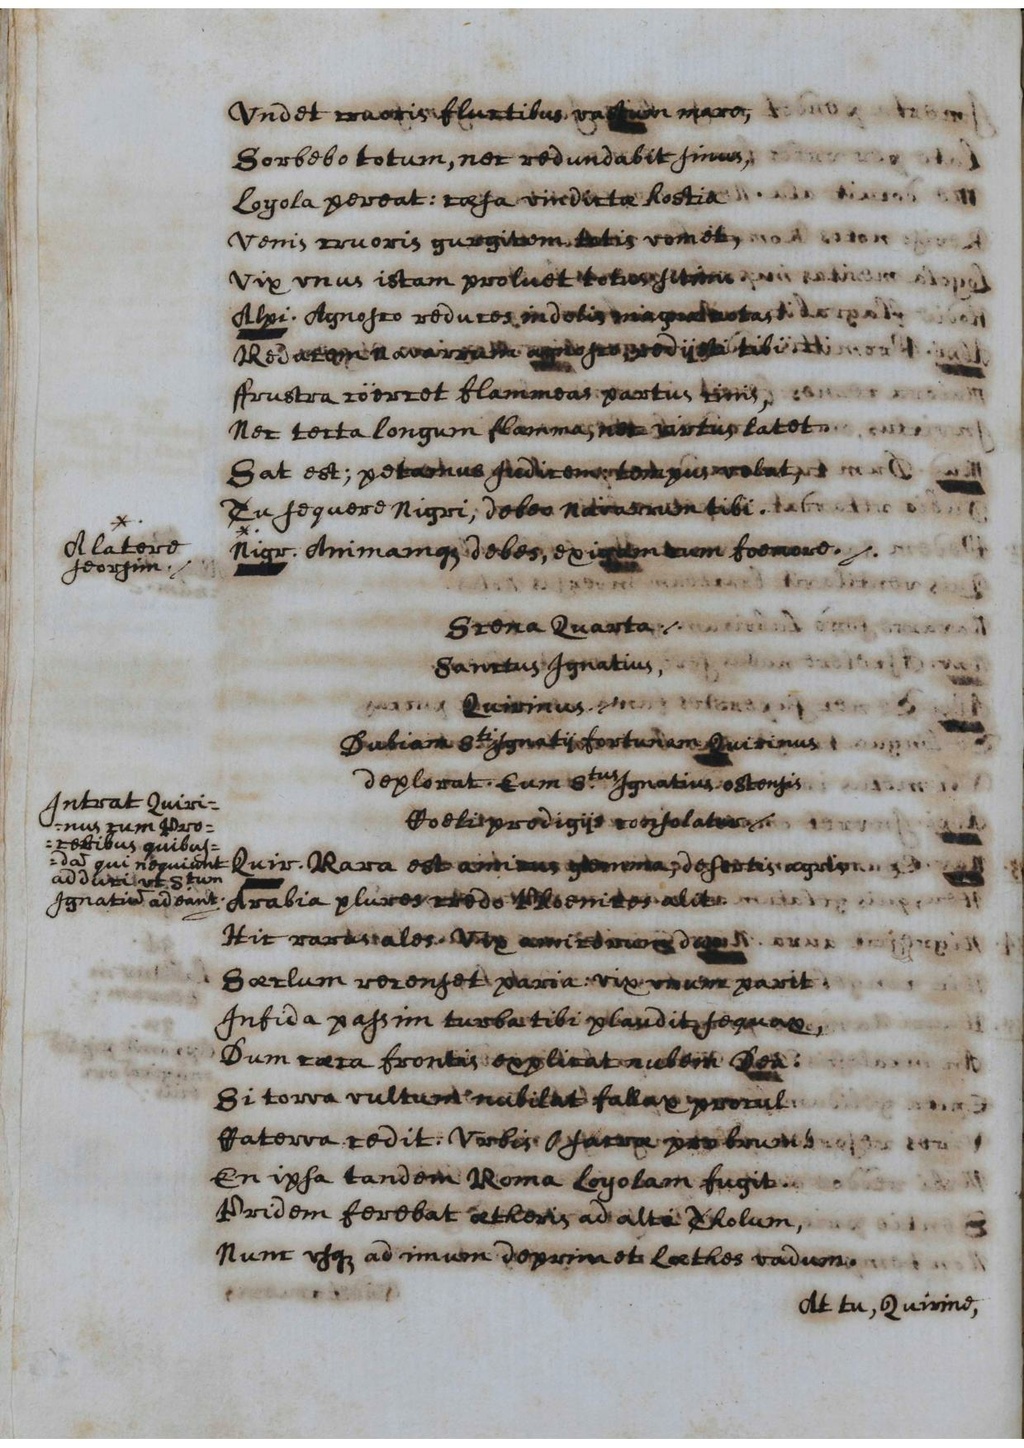 Undet cruoris fluctibus vastum mare,
Sorbebo totum, nec redundabit sinus,
Loyola pereat: cæsa vindictæ hostia
Venis cruoris gurgitem totis vomet,
Vix vnus istam proluet totus sitim
Alpi. Agnosco reduces indolis magnæ notas
Redacem Navarrum agnosco redijsti tibi
ffrustra coercet flammeas partus sinus,
Nec tecta longum flamma, nec virtus latet
Sat est; petamus Judicem: tempus volat,
Tu sequere Nigri, debeo Navarrum tibi.
*.
A latere
seorsim.
*.
Nigr. Animamq; debes, exigam cum foenore.
Scena Quarta
Sanctus Ignatius,
Quirinus.
Dubiam S.ti Ignatij fortunam Quirinus
deplorat. Eum S.tus Ignatius ostensis
Coeli prodigijs consolatur
Intrat Quiri=
=nus cum Pro=
=ceribus quibus=
=dã qui nequiunt
adduci vt S.tum
Ignatiũ adeant.
Quir. Rara est amicus gemma; desertis agris
Arabia plures credo Phoenices alit
Hic rarus ales. Vix amicorum duo
Sæclum recenset paria: vix vnum parit.
Infida passim turba tibi plaudit sequax,
Dum cæca frontis explicat nubem Dea:
Si torva vultum nubilat fallax procul
Caterva cedit. Vrbis O sacræ probrum!
En ipsa tandem Roma Loyolam fugit.
Pridem ferebat ætheris ad alti Tholum,
Nunc vsq; ad imum deprimet Læthes vadum.
At tu, Quirine,